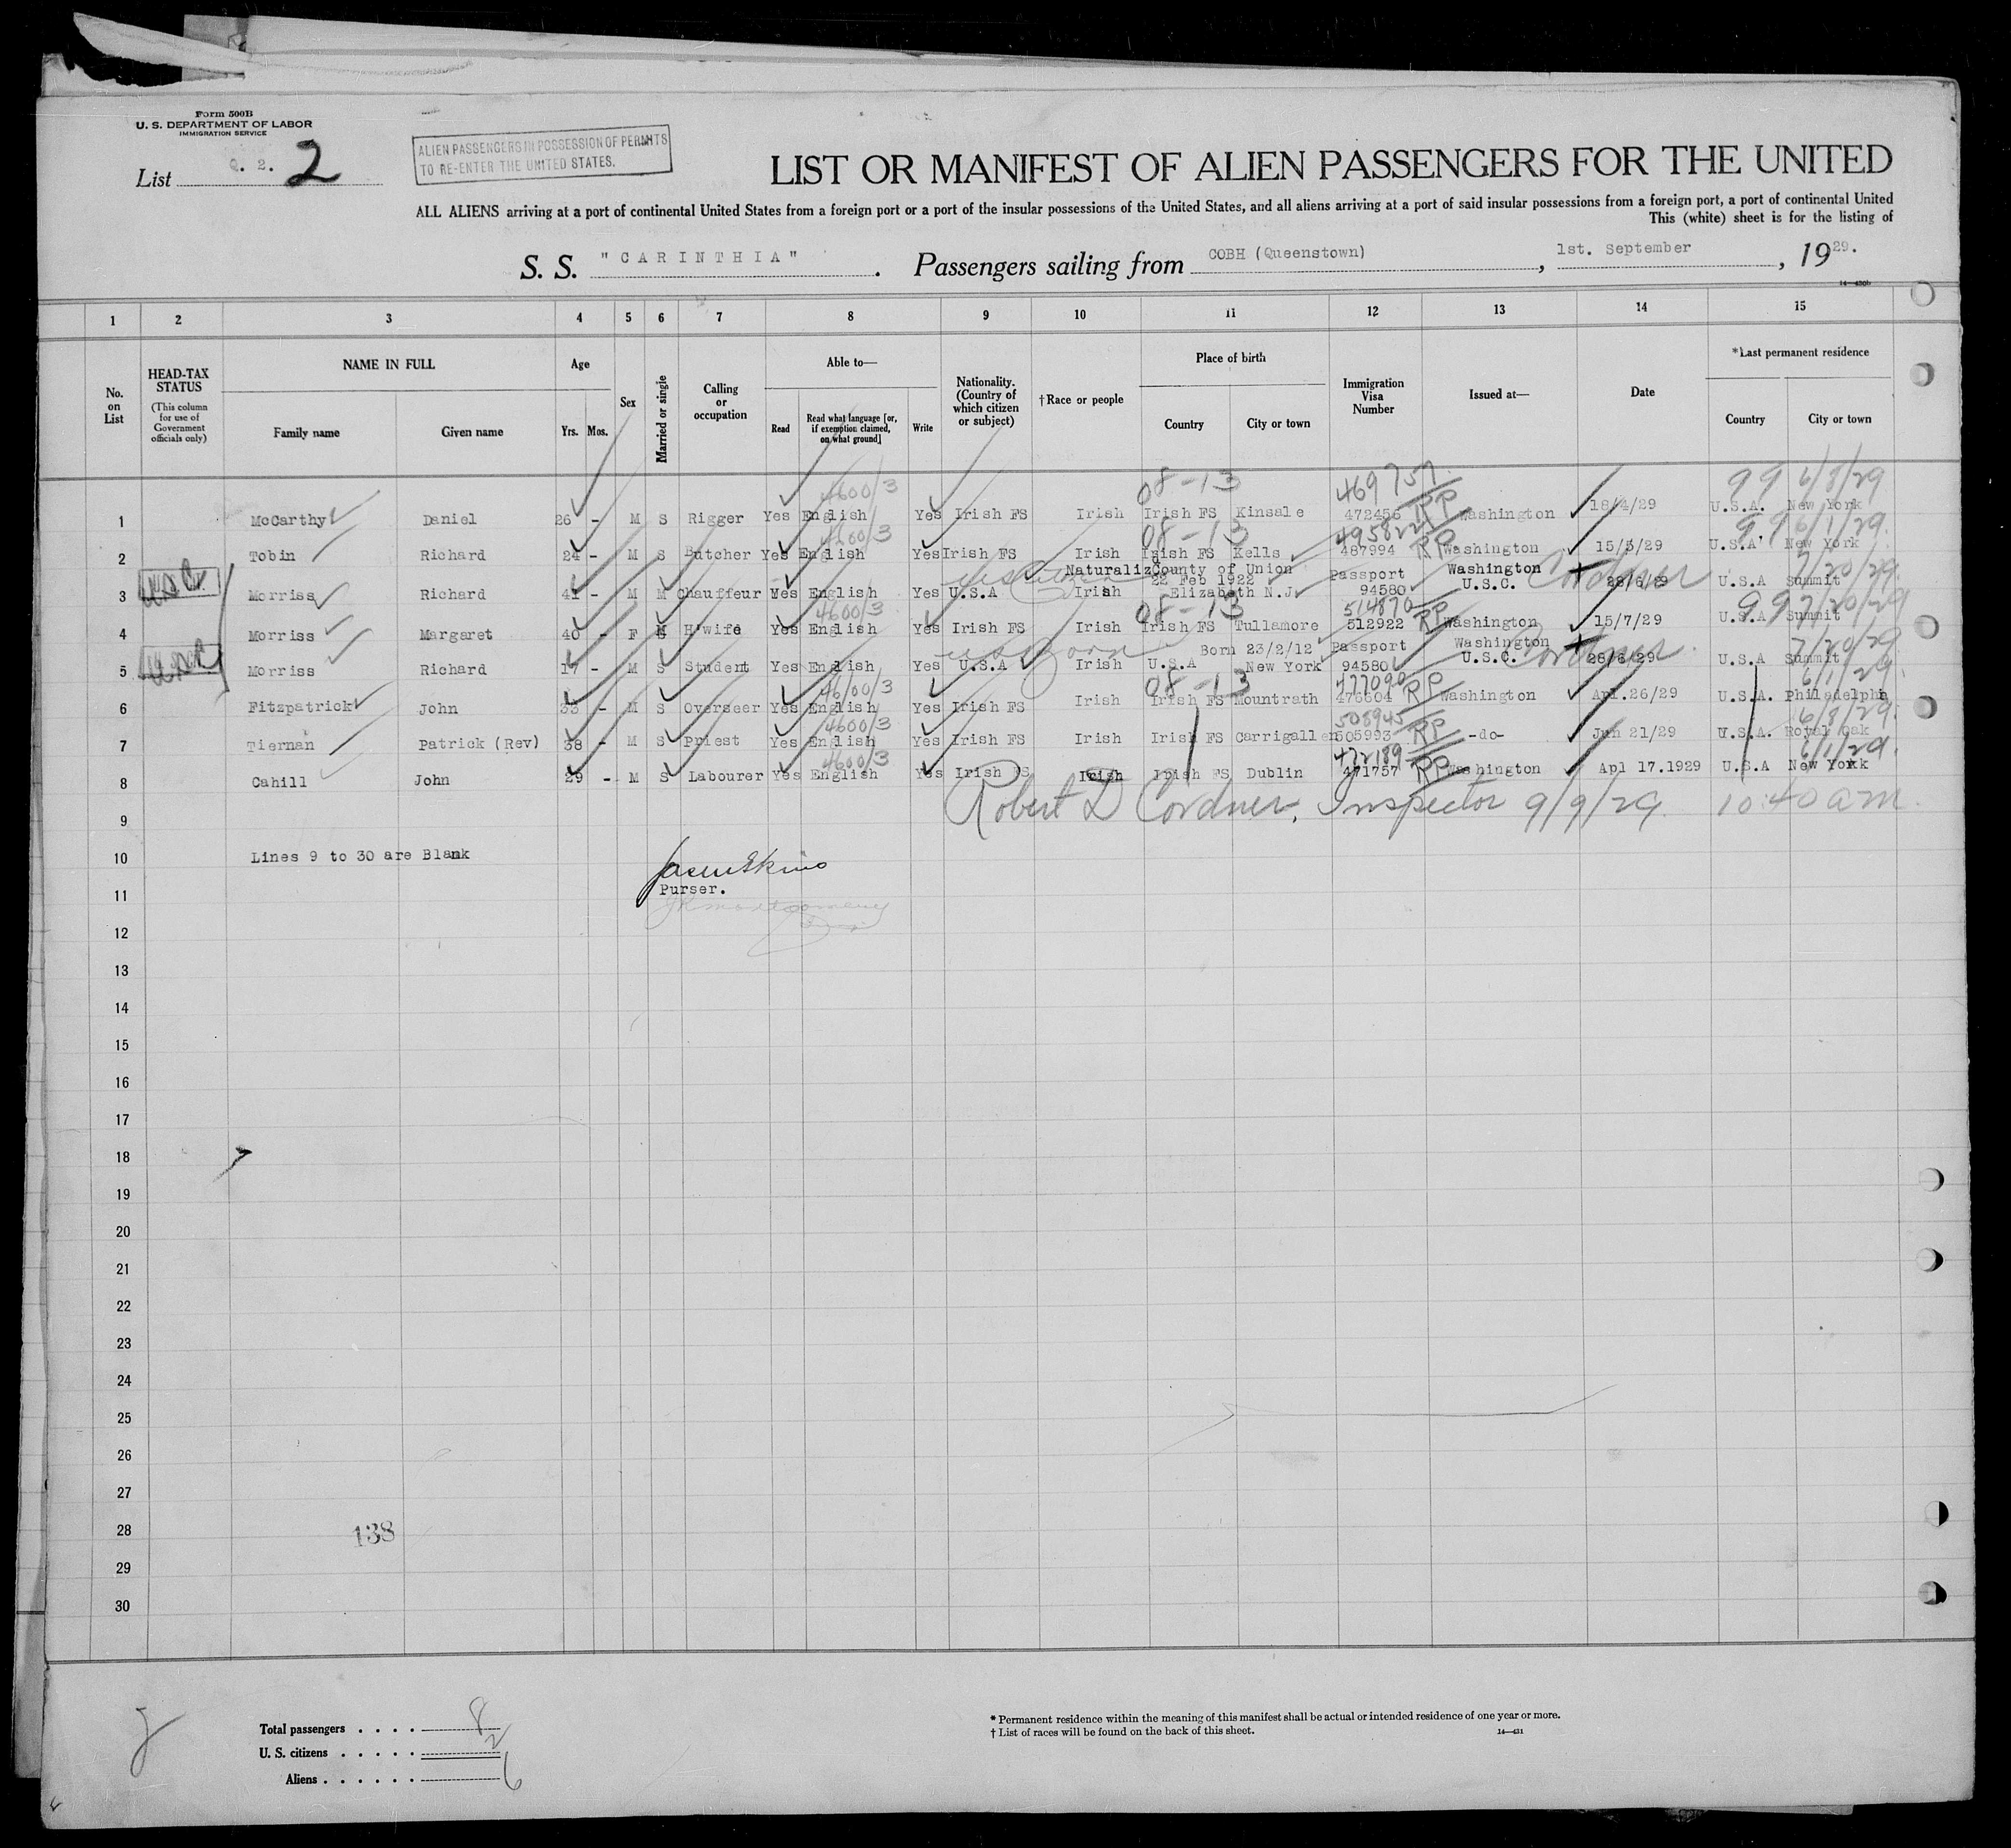 Form 500B
U. S. DEPARTMENT OF LABOR
IMMIGRATION SERVICE
List Q. 2. 2
ALIEN PASSENGERS IN POSSESSION OF PERMITS
TO RE-ENTER THE UNITED STATES.
LIST OR MANIFEST OF ALIEN PASSENGERS FOR THE UNITED
ALL ALIENS arriving at a port of continental United States from a foreign port or a port of the insular possessions of the United States, and all aliens arriving at a port of said insular possessions from a foreign port, a port of continental United
This (white) sheet is for the listing of
S. S. "CARINTHIA". Passengers sailing from COBH (Queenstown), 1st. September, 1929.
1 2 3 4 5 6 7 8 9 10 11 12 13 14 15
No. on List
HEAD-TAX STATUS
(This column for use of Government officials only)
NAME IN FULL
Family name Given name
Age
Yrs. Mos.
Sex
Married or single
Calling or occupation
Able to—
Read Read what language [or, if exemption claimed, on what ground] Write
Nationality. (Country of which citizen or subject)
†Race or people
Place of birth
Country City or town
Immigration Visa Number
Issued at—
Date
*Last permanent residence
Country City or town
4600/3 08-13 469757 RP 99 6/8/29
1 McCarthy Daniel 26 - M S Rigger Yes English Yes Irish FS Irish Irish FS Kinsale 472456 Washington 18/4/29 U.S.A. New York
4600/3 08-13 495822 RP 99 6/1/29.
2 Tobin Richard 24 - M S Butcher Yes English Yes Irish FS Irish Irish FS Kells 487994 Washington 15/5/29 U.S.A. New York
US Citizen Naturaliz County of Union 22 Feb 1922 Passport Washington Cordner 7/20/29
3 Morriss Richard 41 - M M Chauffeur Yes English Yes U.S.A Irish Elizabeth N.J. 94580 U.S.C. 28/6/29 U.S.A Summit
4600/3 08-13 514870 RP 99 7/20/29
4 Morriss Margaret 40 - F M H'wife Yes English Yes Irish FS Irish Irish FS Tullamore 512922 Washington 15/7/29 U.S.A Summit
US Born Born 23/2/12 Passport Washington Cordner. 7/20/29
5 Morriss Richard 17 - M S Student Yes English Yes U.S.A Irish U.S.A New York 94580 U.S.C. 28/6/29 U.S.A Summit
4600/3 08-13 477090 RP 6/1/29
6 Fitzpatrick John 33 - M S Overseer Yes English Yes Irish FS Irish Irish FS Mountrath 476604 Washington Apl.26/29 U.S.A. Philadelphia
4600/3 508945 RP 6/8/29.
7 Tiernan Patrick (Rev) 38 - M S Priest Yes English Yes Irish FS Irish Irish FS Carrigallen 505993 -do- Jun 21/29 U.S.A. Royal Oak
4600/3 472189 RP 6/1/29.
8 Cahill John 29 - M S Labourer Yes English Yes Irish FS Irish Irish FS Dublin 471757 Washington Apl 17.1929 U.S.A New York
Robert D Cordner, Inspector 9/9/29. 10:40 am.
9
10 Lines 9 to 30 are Blank
11 Purser.
12
13
14
15
16
17
18
19
20
21
22
23
24
25
26
27
28 138
29
30
Total passengers . . . . 8
U. S. citizens . . . . . 2
Aliens . . . . . . 6
* Permanent residence within the meaning of this manifest shall be actual or intended residence of one year or more.
† List of races will be found on the back of this sheet.
14—431